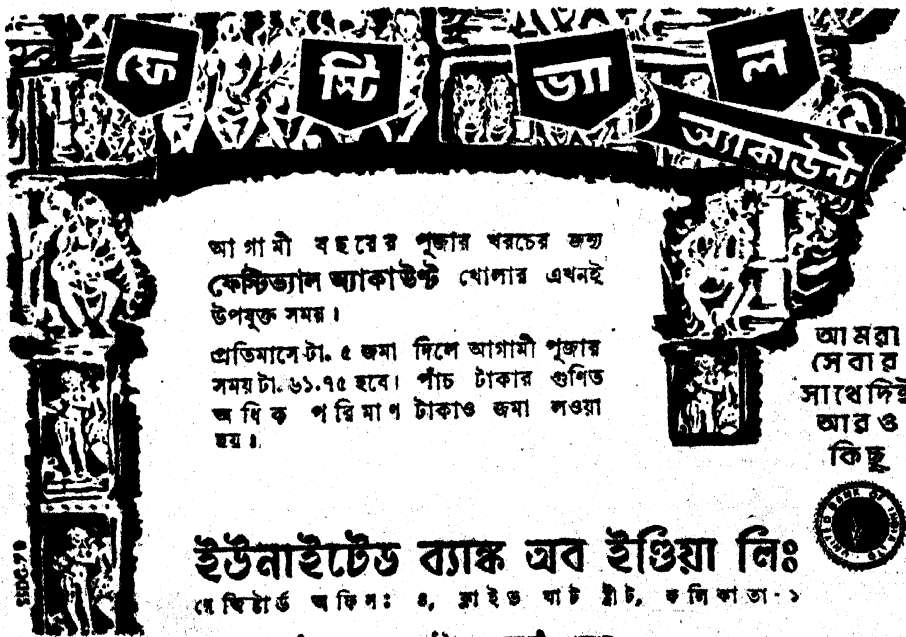 ফেস্টিভ্যাল
অ্যাকাউন্ট
আগামী বছরের পূজার খরচের জন্য
ফেস্টিভ্যাল অ্যাকাউন্ট খোলার এখনই
উপযুক্ত সময়।
প্রতিমাসে টা. ৫ জমা দিলে আগামী পূজার
সময় টা. ৬১.৭৫ হবে। পাঁচ টাকার গুণিত
অধিক পরিমাণ টাকাও জমা লওয়া
হয়।
আমরা
সেবার
সাথে দিই
আরও
কিছু
UNITED BANK OF INDIA LD
ইউনাইটেড ব্যাঙ্ক অব ইণ্ডিয়া লিঃ
রেজিষ্টার্ড অফিস: ৪, ক্লাইভ ঘাট ষ্ট্রীট, কলিকাতা-১